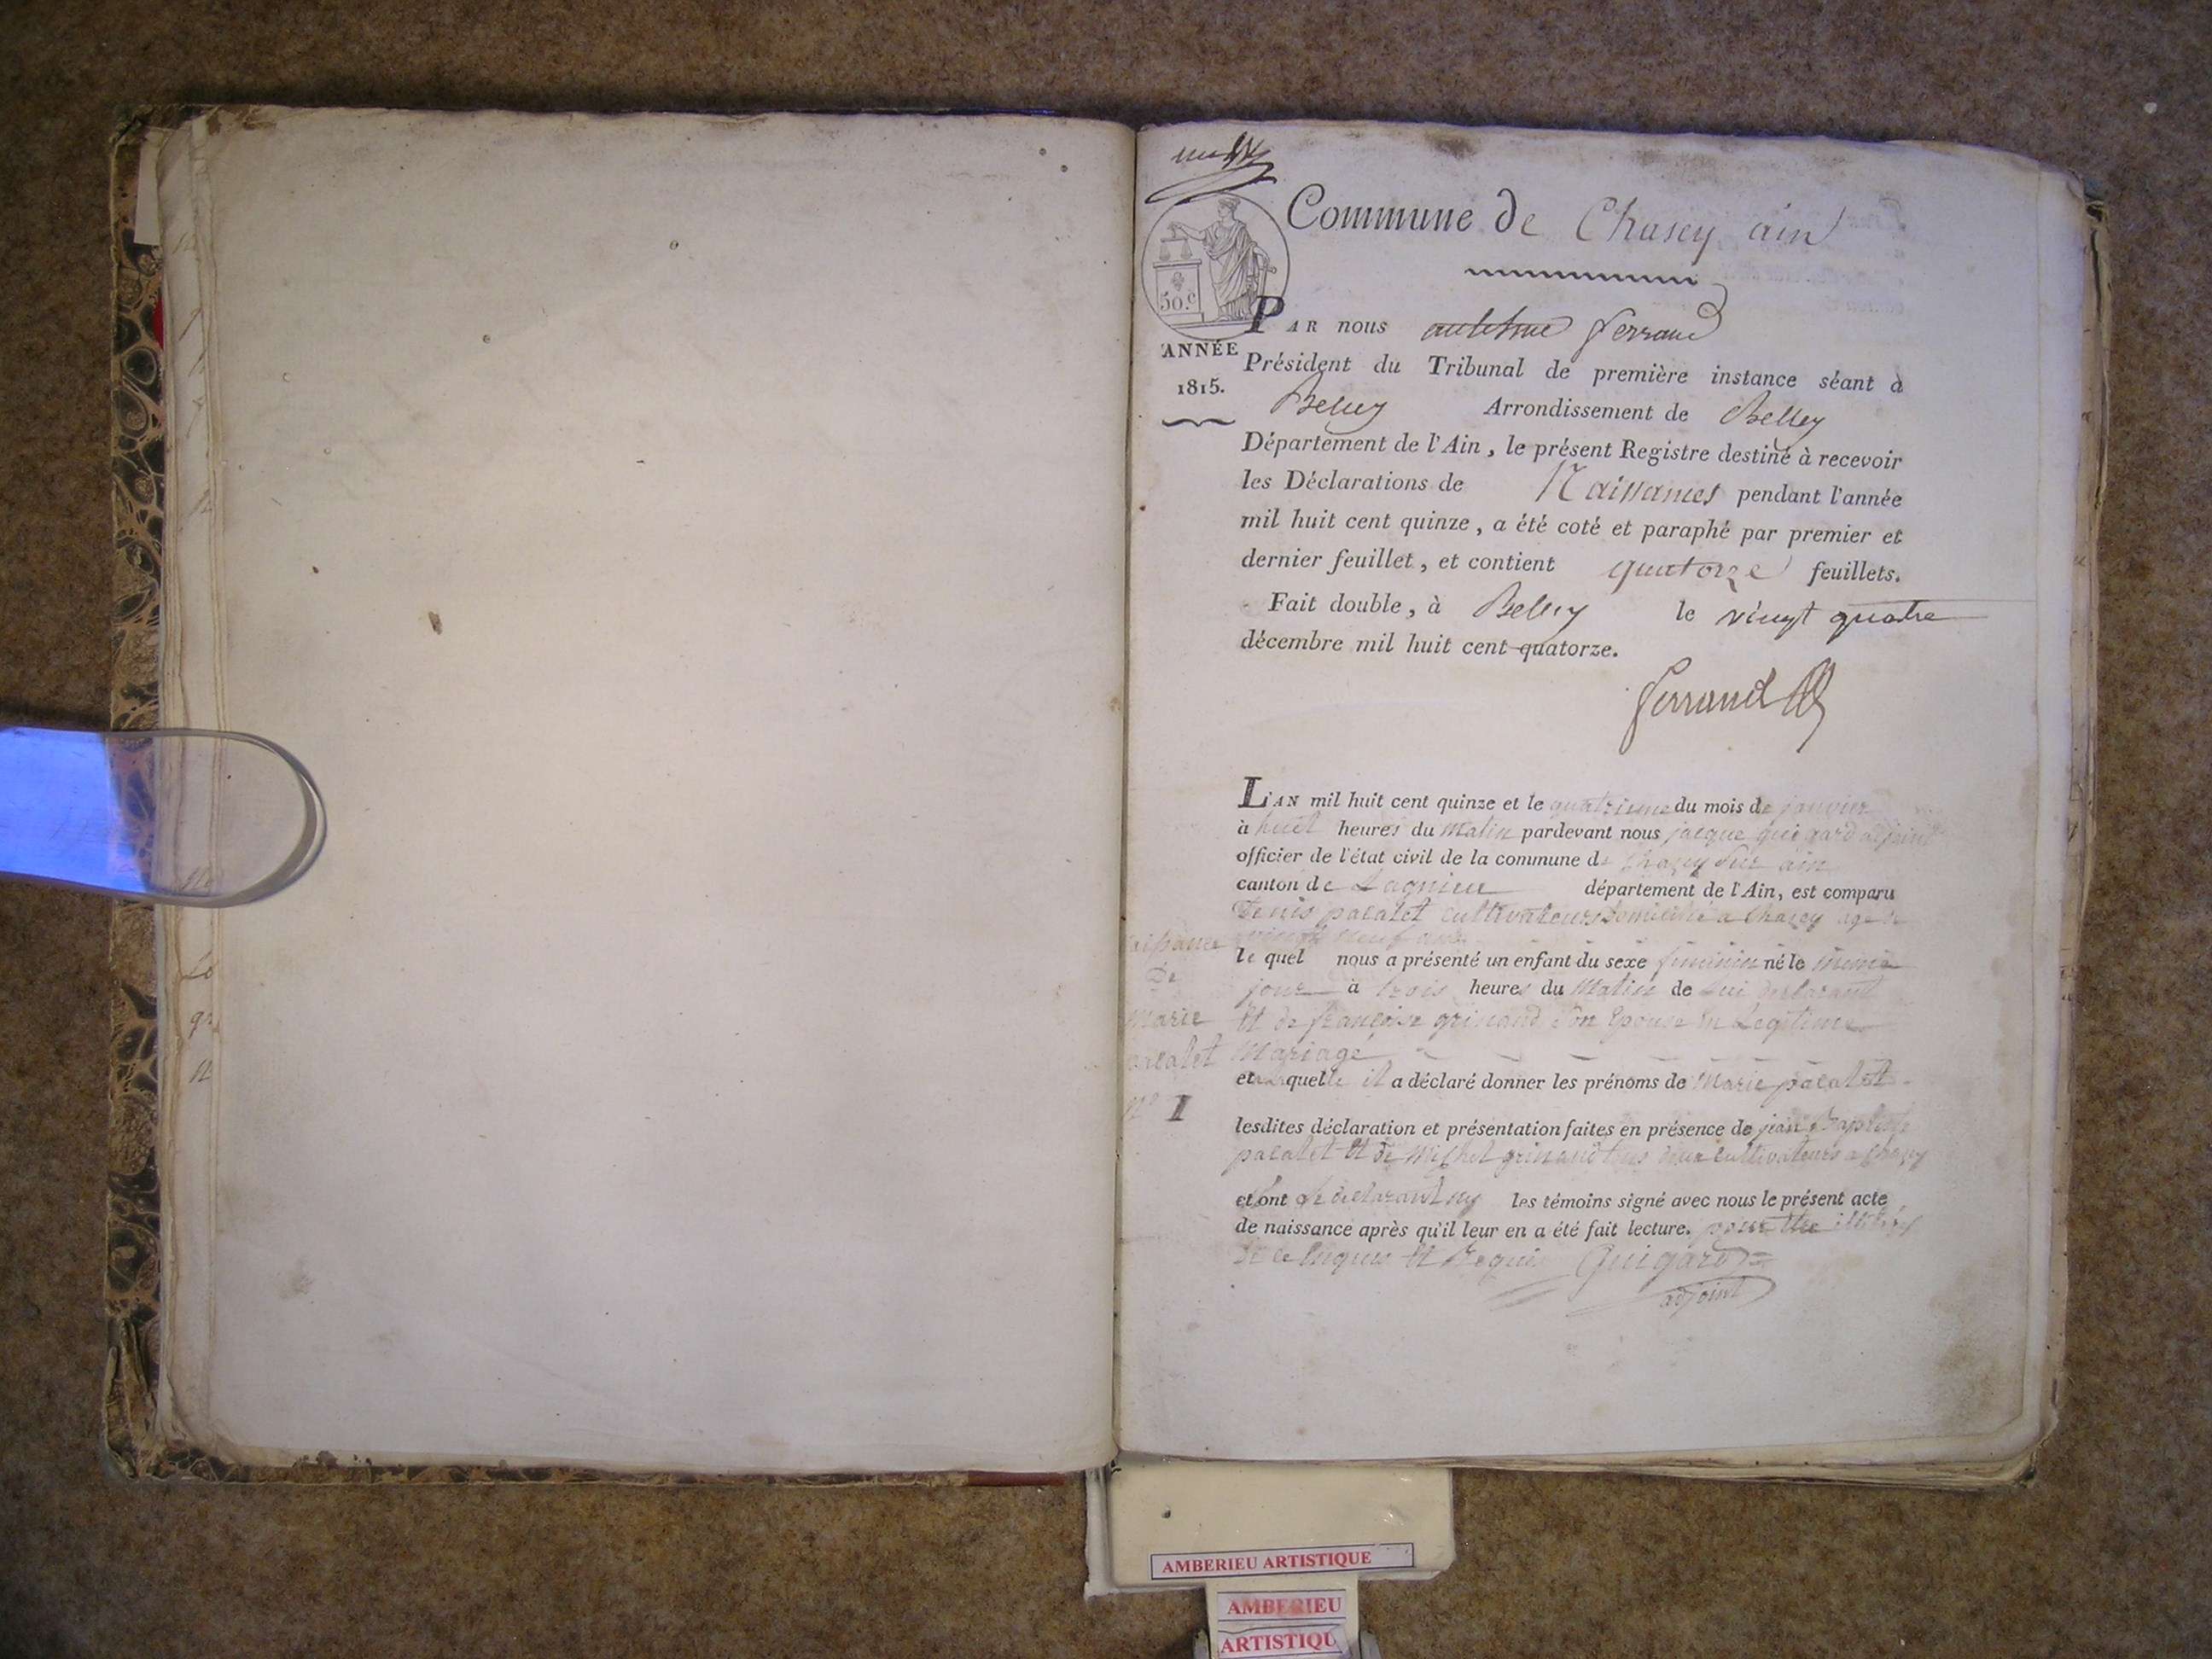 Commune de Chasey ain
50.c
PAR nous anthelme Ferrand
ANNÉE
1815.
Président du Tribunal de première instance séant à
Belley Arrondissement de Belley
Département de l'Ain, le présent Registre destiné à recevoir
les Déclarations de Naissances pendant l'année
mil huit cent quinze, a été coté et paraphé par premier et
dernier feuillet, et contient quatorze feuillets.
Fait double, à Belley le vingt quatre
décembre mil huit cent quatorze.
Ferrand
L'AN mil huit cent quinze et le quatrieme du mois de janvier
à huit heures du Matin pardevant nous jacque guigard adjoint
officier de l'état civil de la commune de Chazey Sur ain
canton de Lagnieu département de l'Ain, est comparu
Denis palatet cultivateur domicilié a Chazey age de
vingt neuf ans
le quel nous a présenté un enfant du sexe feminin né le meme
jour à trois heures du Matin de Lui declarant
Et de françoise grinand Son Epouse En Legitime
Mariage
et a laquelle il a déclaré donner les prénoms de Marie palatet
lesdites déclaration et présentation faites en présence de jean Baptiste
palatet Et de Michel grinand tous deux cultivateurs a Chazey
et ont le declarant ny les témoins signé avec nous le présent acte
de naissance après qu'il leur en a été fait lecture. pour etre illitérés
de ce Enquis Et Requis Guigard
adjoint
Naissance
De
Marie
palatet
N° 1
AMBERIEU ARTISTIQUE
AMBERIEU
ARTISTIQU